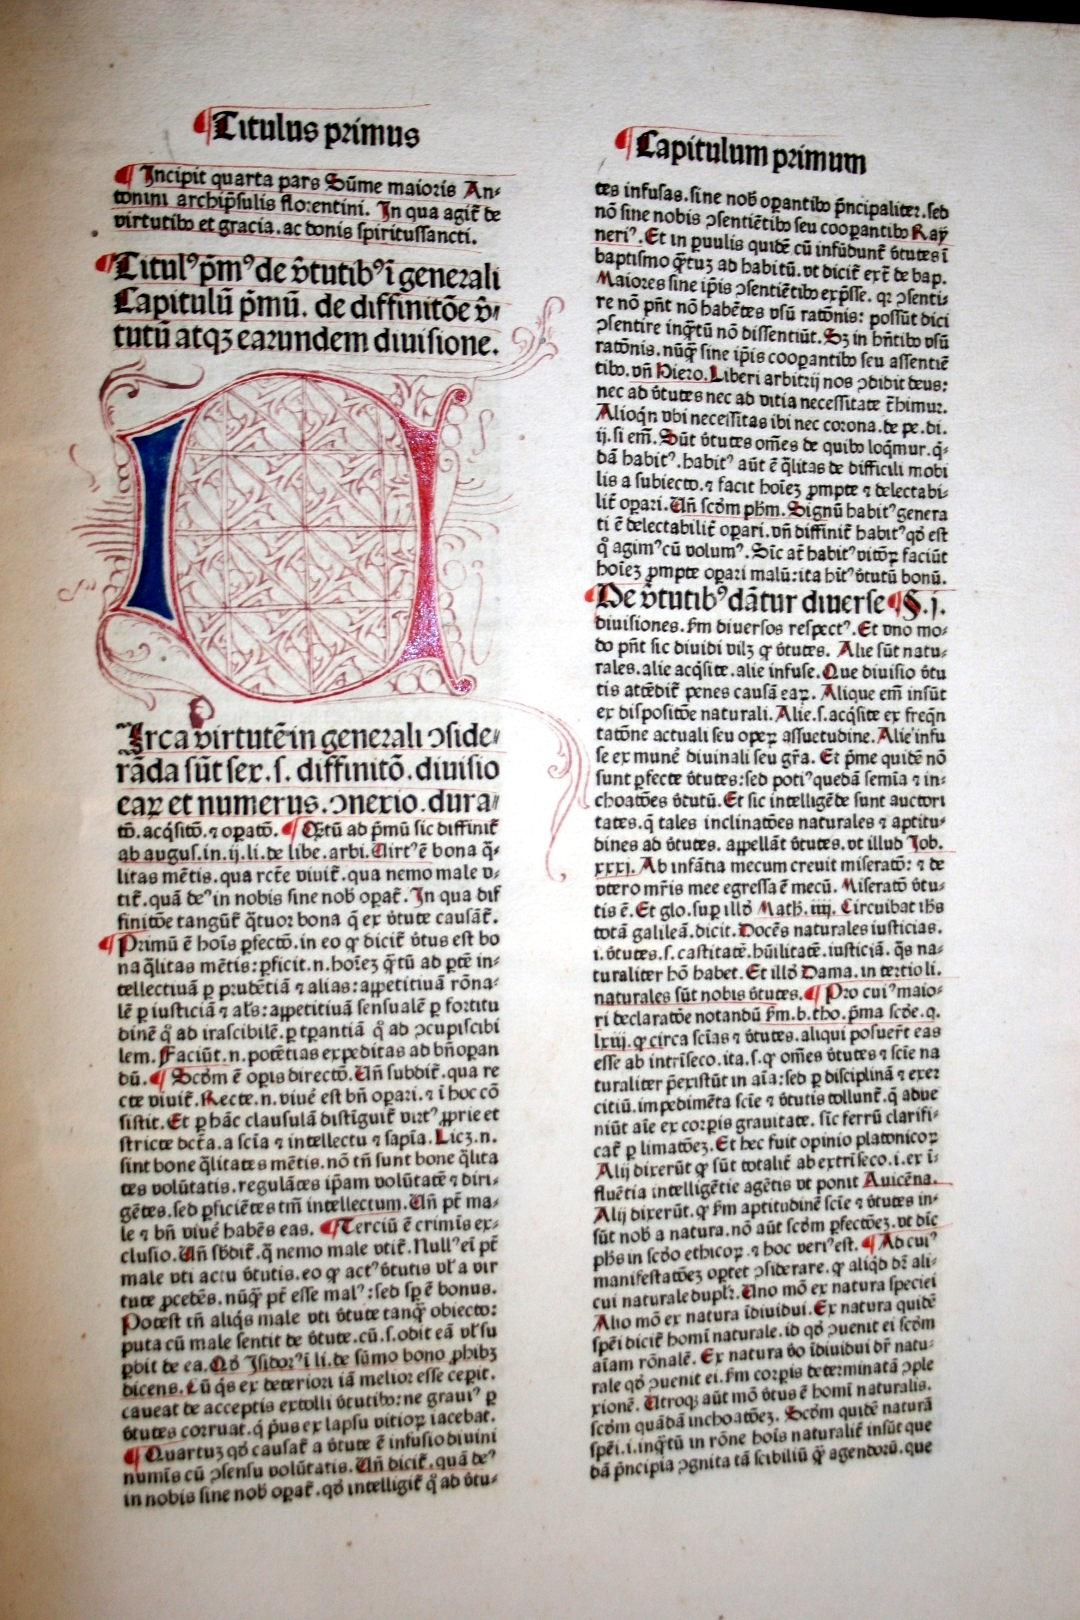 Titulus primus
Incipit quarta pars Sūme maioris An⸗
tonini archip̄sulis florentini. In qua agit̄ de
virtutibꝰ et gracia. ac donis spiritussancti.
Titulꝰ p̄mꝰ de v̄tutibꝰ ī generali
Capitulū p̄mū. de diffinitōe v̄⸗
tutū atqꝫ earundem diuisione.
Irca virtutē in generali ꝯside⸗
rāda sūt sex. s. diffinitō. diuisio
eaꝝ et numerus. ꝯnexio. dura⸗
tō. acq̄sitō. ⁊ oꝑatō. Q̄tū ad p̄mū sic diffinit̄
ab augus. in. ij. li. de libe. arbi. Virtꝰ ē bona q̄⸗
litas mētis. qua rcte viuit̄. qua nemo male v⸗
tit̄. quā deꝰ in nobis sine nob̄ oꝑat̄. In qua dif
finitōe tangūt̄ q̄tuor bona q̄ ex v̄tute causāt̄.
Primū ē hoīs ꝑfectō. in eo ꝙ dicit̄ v̄tus est bo
na q̄litas mētis: ꝑficit. n. hoīeꝫ q̄tū ad ꝑtē in⸗
tellectiuā ꝑ prudētiā ⁊ alias: appetitiuā rōna⸗
lē ꝑ iusticiā ⁊ al̄s: appetitiuā sensualē ꝑ fortitu
dinē q̄ ad irascibilē. ꝑ tꝑantiā q̄ ad ꝯcupiscibi
lem. Faciūt. n. potētias expeditas ad bn̄ oꝑan
dū. Scōm ē oꝑis directō. Vn̄ subdit̄. qua re
cte viuit̄. Recte. n. viuē est bn̄ oꝑari. ⁊ ī hoc cō
sistit. Et ꝑ hāc clausulā distīguit̄ virtꝰ ꝓprie et
stricte dct̄a. a scīa ⁊ intellectu ⁊ sapīa. Licꝫ. n.
sint bone q̄litates mētis. nō tn̄ sunt bone q̄lita
tes volūtatis. regulātes ip̄am volūtatē ⁊ diri⸗
gētes. sed ꝑficiētes tm̄ intellectum. Vn̄ pt̄ ma⸗
le ⁊ bn̄ viuē habēs eas. Terciū ē crimīs ex⸗
clusio. Vn̄ sb̄dit̄. q̄ nemo male vtit̄. Nullꝰ eī pt̄
male vti actu v̄tutis. eo ꝙ actꝰ v̄tutis vl̄ a vir
tute ꝓcedēs. nūꝙ̄ pt̄ esse malꝰ: sed sꝑ ē bonus.
Potest tn̄ aliq̄s male vti v̄tute tanꝙ̄ obiecto:
puta cū male sentit de v̄tute. cū. s. odit eā vl̄ su
ꝑbit de ea. Qd̄ Isidorꝰ ī li. de sūmo bono ꝓhibꝫ
dicens. Cū q̄s ex deteriori iā melior esse ceꝑit.
caueat de acceptis extolli v̄tutibꝰ: ne grauiꝰ ꝑ
v̄tutes corruat. q̄ p̄us ex lapsu vitioꝝ iacebat.
Quartuꝫ qd̄ causat̄ a v̄tute ē infusio diuini
numīs cū ꝯsensu volūtatis. Vn̄ dicit̄. quā deꝰ
in nobis sine nob̄ oꝑat̄. qd̄ intelligit̄ q̄ ad v̄tu⸗
Capitulum primum
tes infusas. sine nob̄ oꝑantibꝰ p̄ncipaliter. sed
nō sine nobis ꝯsentiētibꝰ seu cooꝑantibꝰ Ray
nerꝰ. Et in ꝑuulis quidē cū infūdunt̄ v̄tutes ī
baptismo q̄tuꝫ ad habitū. vt dicit̄ ext̄ de bap.
Maiores sine ip̄is ꝯsentiētibꝰ exp̄sse. qꝛ ꝯsenti⸗
re nō pn̄t nō habētes vsū ratōnis: possūt dici
ꝯsentire inq̄tū nō dissentiūt. Sꝫ in hn̄tibꝰ vsū
ratōnis. nūꝙ̄ sine ip̄is cooꝑantibꝰ seu assentiē
tibꝰ. vn̄ Hiero. Liberi arbitrij nos ꝯdidit deus:
nec ad v̄tutes nec ad vitia necessitate t̄himur.
Alioq̄n vbi necessitas ibi nec corona. de pe. di.
ij. si em̄. Sūt v̄tutes om̄es de quibꝰ loq̄mur. q̄⸗
dā habitꝰ. habitꝰ aūt ē q̄litas de difficili mobi
lis a subiecto. ⁊ facit hoīeꝫ ꝓmpte ⁊ delectabi⸗
lit̄ oꝑari. Vn̄ scōm ph̄m. Signū habitꝰ genera
ti ē delectabilit̄ oꝑari. vn̄ diffinit̄ habitꝰ qd̄ est
q̄ agimꝰ cū volumꝰ. Sīc at̄ habitꝰ vitōꝝ faciūt
hoīeꝫ ꝓmpte oꝑari malū: ita hītꝰ v̄tutū bonū.
De v̄tutibꝰ dātur diuerse §. j.
diuisiones. ẜm diuersos respectꝰ. Et vno mo⸗
do pn̄t sic diuidi vilꝫ ꝙ v̄tutes. Alie sūt natu⸗
rales. alie acq̄site. alie infuse. Que diuisio v̄tu
tis atēdit̄ penes causā eaꝝ. Alique em̄ insūt
ex dispositōe naturali. Alie. s. acq̄site ex freq̄n
tatōne actuali seu oꝑeꝝ assuetudine. Alie infu
se ex munē diuinali seu gr̄a. Et p̄me quidē nō
sunt ꝑfecte v̄tutes: sed potiꝰ quedā semīa ⁊ in⸗
choatōes v̄tutū. Et sic intelligēde sunt auctori
tates. q̄ tales inclinatōes naturales ⁊ aptitu⸗
dines ad v̄tutes. appellāt v̄tutes. vt illud Job.
xxxj. Ab infātia mecum creuit miseratō: ⁊ de
vtero mr̄is mee egressa ē mecū. Miseratō v̄tu⸗
tis ē. Et glo. suꝑ illd̄ Math. iiij. Circuibat ih̄s
totā galileā. dicit. Docēs naturales iusticias.
i. v̄tutes. s. castitatē. hūilitatē. iusticiā. q̄s na⸗
turaliter hō habet. Et illd̄ Dama. in tertio li.
naturales sūt nobis v̄tutes. Pro cuiꝰ maio⸗
ri declaratōe notandū ẜm. b. tho. p̄ma scd̄e. q.
lxiij. ꝙ circa scīas ⁊ v̄tutes. aliqui posuer̄t eas
esse ab intrīseco. ita. s. ꝙ om̄es v̄tutes ⁊ scīe na
turaliter p̄existūt in aīa: sed ꝑ disciplinā ⁊ exer
citiū. impedimēta scīe ⁊ v̄tutis tollunt̄. q̄ adue
niūt aīe ex corꝑis grauitate. sic ferrū clarifi⸗
cat̄ ꝑ limatōeꝫ. Et hec fuit opinio platonicoꝝ
Alij dixerūt ꝙ sūt totalit̄ ab extrīseco. i. ex ī⸗
fluētia intelligētie agētis vt ponit Auicēna.
Alij dixerūt. ꝙ ẜm aptitudinē scīe ⁊ v̄tutes in⸗
sūt nob̄ a natura. nō aūt scōm ꝑfectōeꝫ. vt dīc
ph̄s in scd̄o ethicoꝝ. ⁊ hoc verꝰ est. Ad cuiꝰ
manifestatōeꝫ oꝑtet ꝯsiderare. ꝙ aliqd̄ dr̄ ali⸗
cui naturale dupl̄r. Uno mō ex natura speciei
Alio mō ex natura īdiuidui. Ex natura quidē
sp̄ei dicit̄ homī naturale. id qd̄ ꝯuenit ei scōm
aīam rōnalē. Ex natura v̄o īdiuidui dr̄ natu⸗
rale qd̄ ꝯuenit ei. ẜm corꝑis determinatā ꝯple
xionē. Utroqꝫ aūt mō v̄tus ē homī naturalis.
scōm quādā inchoatōeꝫ. Scōm quidē naturā
sp̄ei. i. inq̄tū in rōne hoīs naturalit̄ insūt que
dā p̄ncipia ꝯgnita tā scibiliū ꝙ̄ agendorū. que